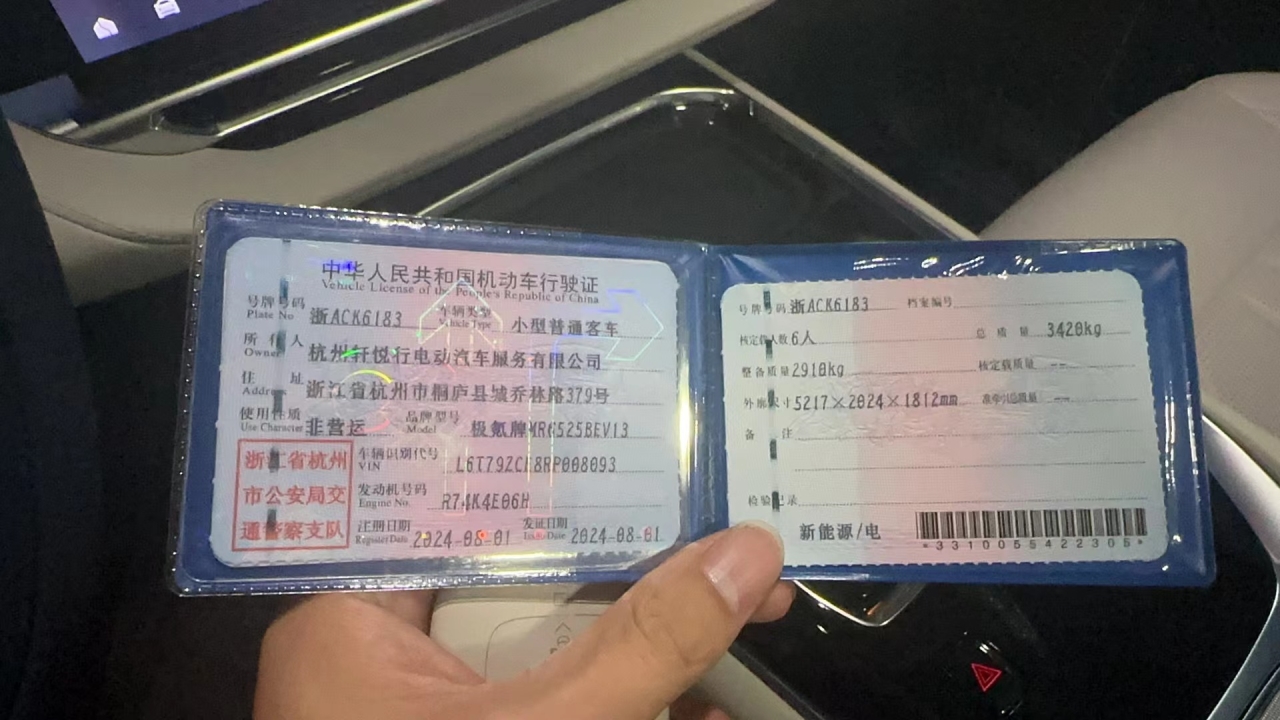 中华人民共和国机动车行驶证
Vehicle License of the People's Republic of China
号牌号码 浙ACK6183 车辆类型 小型普通客车
Plate No Vehicle Type
所有人 杭州轩悦行电动汽车服务有限公司
Owner
住址 浙江省杭州市桐庐县城乔林路379号
Address
使用性质 非营运 品牌型号 极氪牌MR6525BEV13
Use Character Model
浙江省杭州
市公安局交
通警察支队
车辆识别代号
VIN
发动机号码 R74K4E06H
Engine No.
注册日期 2024-08-01 发证日期 2024-08-01
Register Date Issue Date
号牌号码 浙ACK6183 档案编号
核定载人数 6人 总质量 3420kg
整备质量 2910kg 核定载质量 --
外廓尺寸 5217×2024×1812mm 准牵引总质量 --
备注
检验记录
新能源/电
*3310055422305*